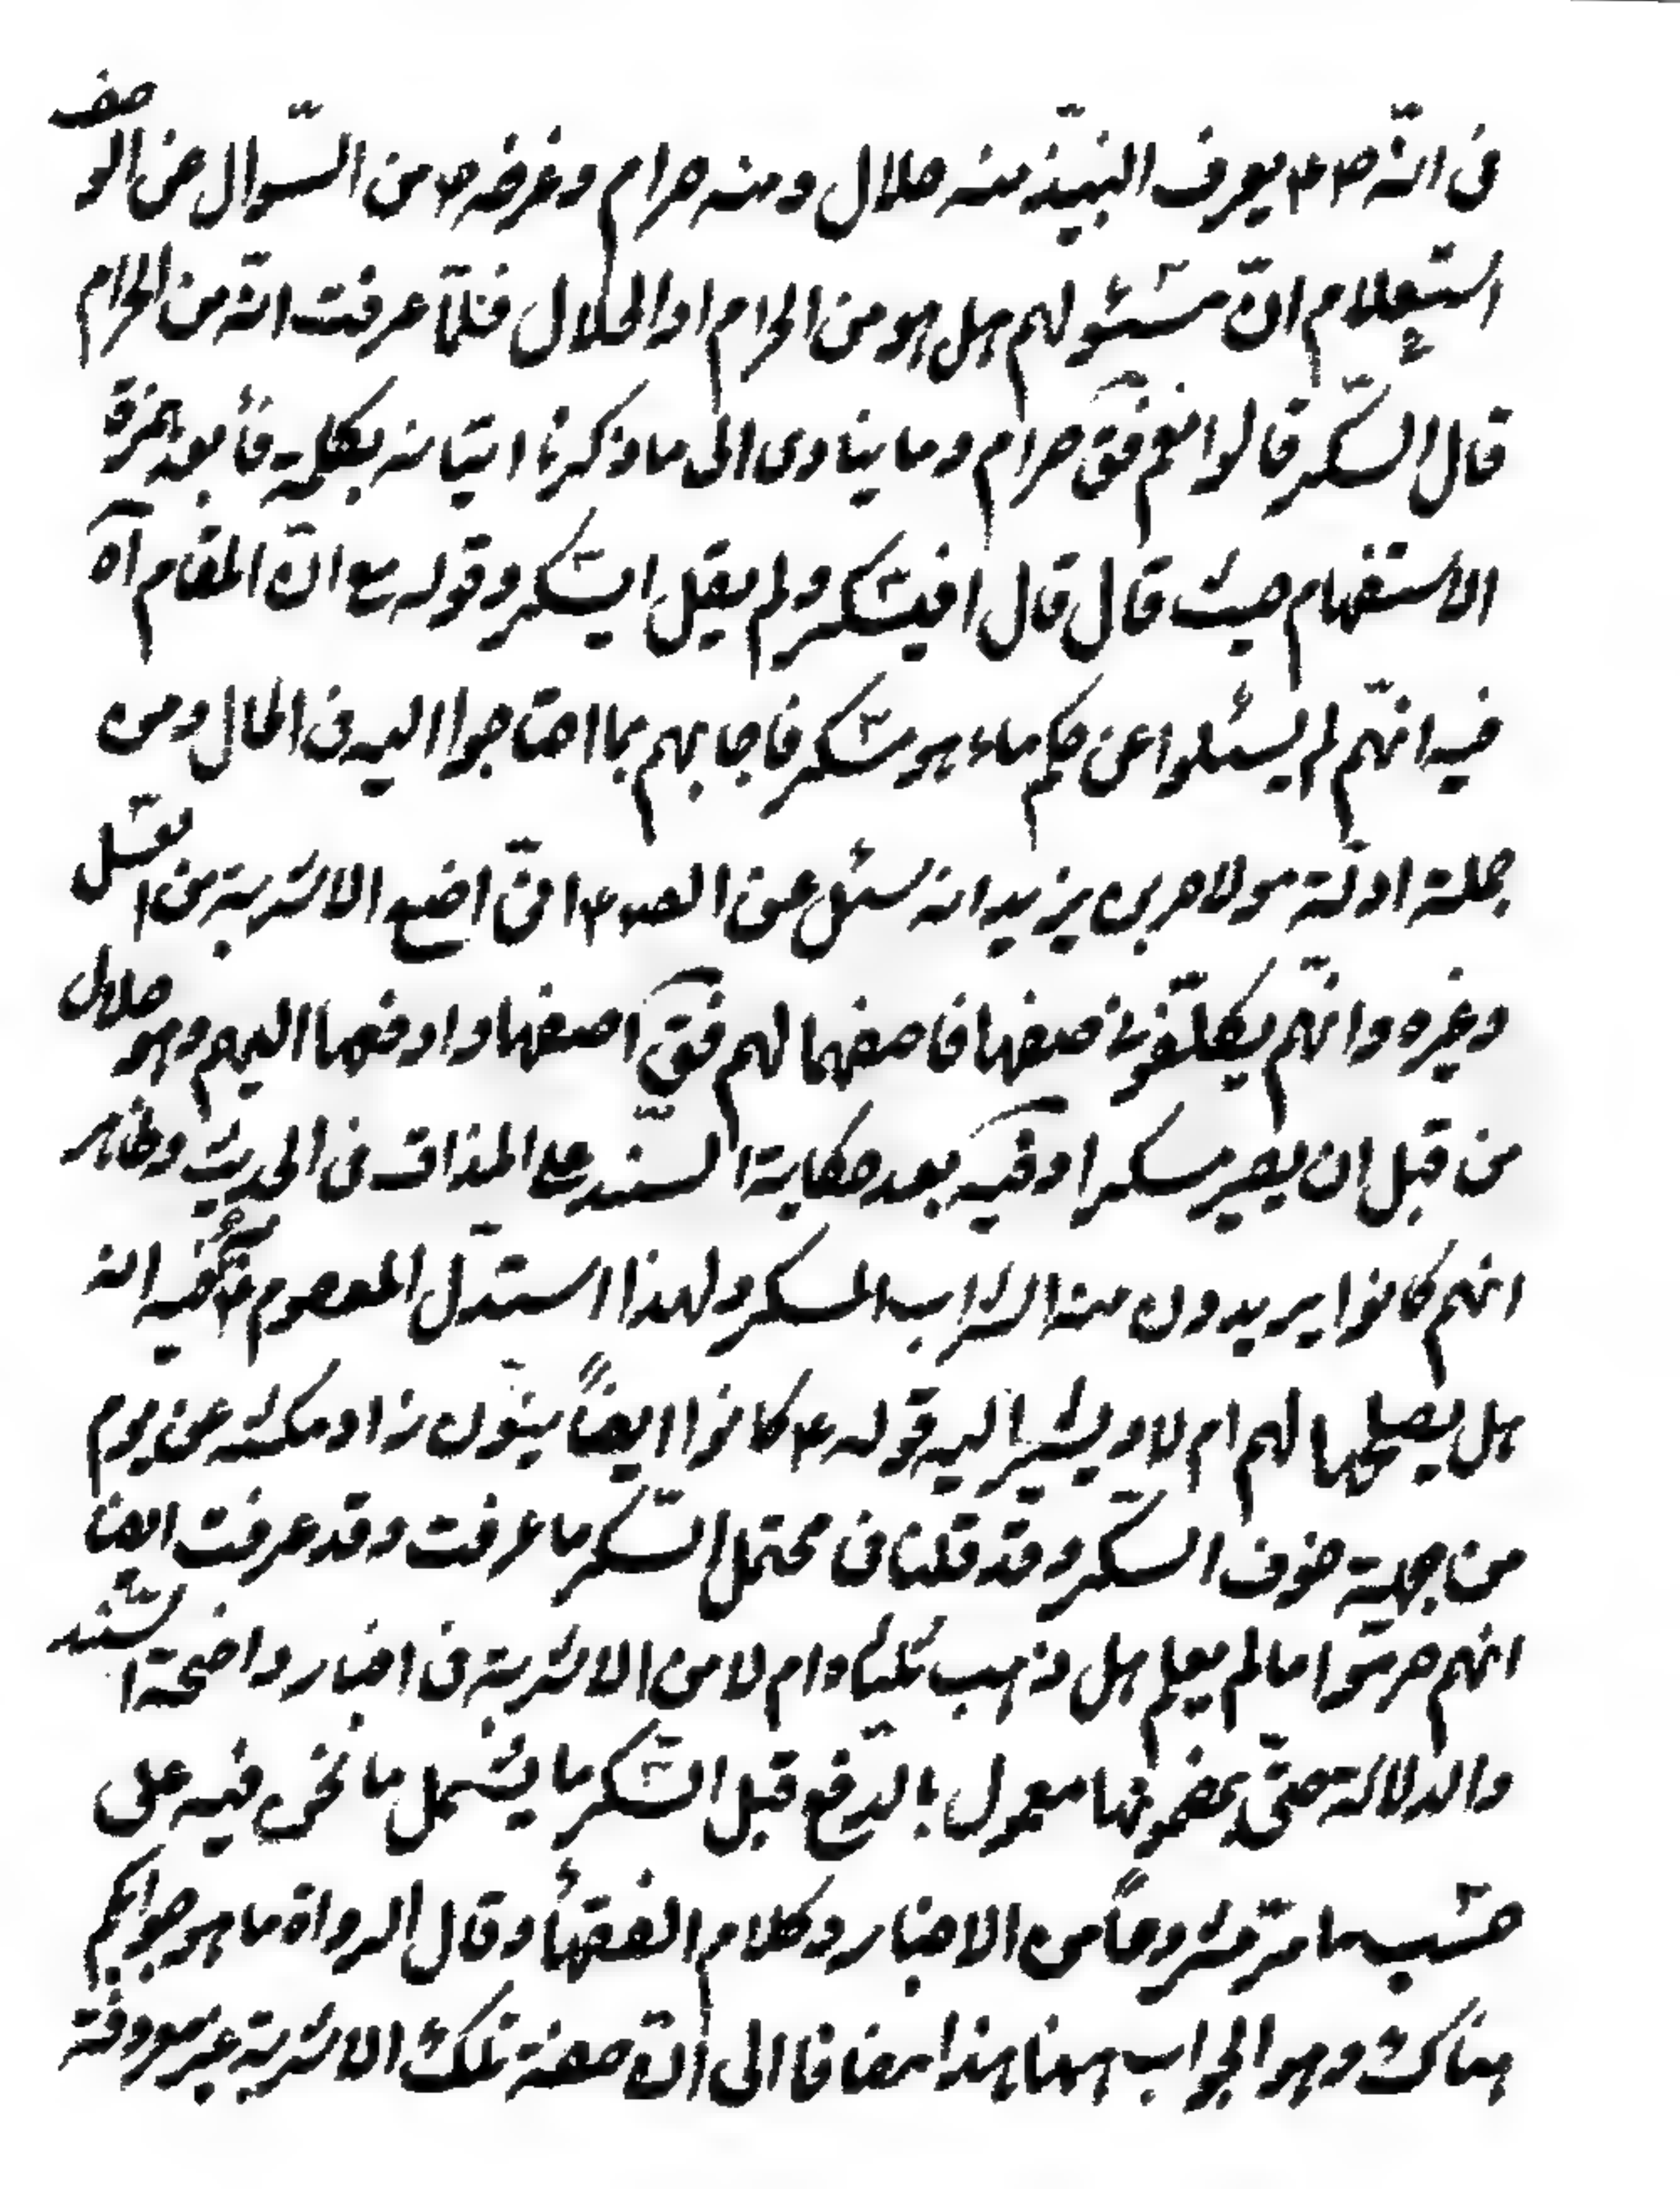 فى انّه ص٤ يعرف النبيّذ منه حلال ومنه حرام وغرضه ص من السّوال عن الوصف
استعلام انّ مسئولهم هل هو من الحرام او الحلال فلمّا عرفت انّه من الحرام
قال السّكر قالوا نعم فقٓ حرام وما ينادى الى ما ذكرنا اتيانه بكلمة فأ بعد همزة
الاستفهام حيث قال قال افيسكر ولم يقل ايسكر وقوله مع انّ المقام آه
فيه انهّم لم يسئلوا عن حكم ماء هو مسكر فاجابهم بما احتاجوا اليه فى الحال ومن
جملة ادلّة مولا بن يزيد انه سئل عن الصـ ٤ انّى اضع الاشربة من العسل
وغيره وانهّم يكلّفونى صنعها فاصنعها لهم فقٓ اصنعها وادفعها اليهم وهو حلال
من قبل ان يصير مسكرا وفيه بعد حكاية السّند على المذاق فى الحديث وظاهر
انهم كانوا يريدون منه الشراب المسكر ولهذا استدّل المعصوم ٤ فيه انه
هل يصلحها لهم ام لا ويشير اليه قوله ٤ كانوا ايضاً ينوّن زاد مكثه عن يوم
من جهة خوف السكر وقد قلنا فى محتمل السّكر ما عرفت وقد عرفت ايضا
انهم حرمّوا ما لم يعلم هل ذهب ثلثاه ام لا من الاشربة فى اخبار واضحة السّند
والدلالة حتّى بمضمونها معمول بالدّفع قبل السّكر ما يشمل ما نحن فيه على
حسب ما مرّ مشروحاً من الاخبار وكلام الفقهأ وقال الرواة ما هو جوابكم
هناك وهو الجواب ههنا هذا مضافا الى انّ صفة تلك الاشربة غير معروفة